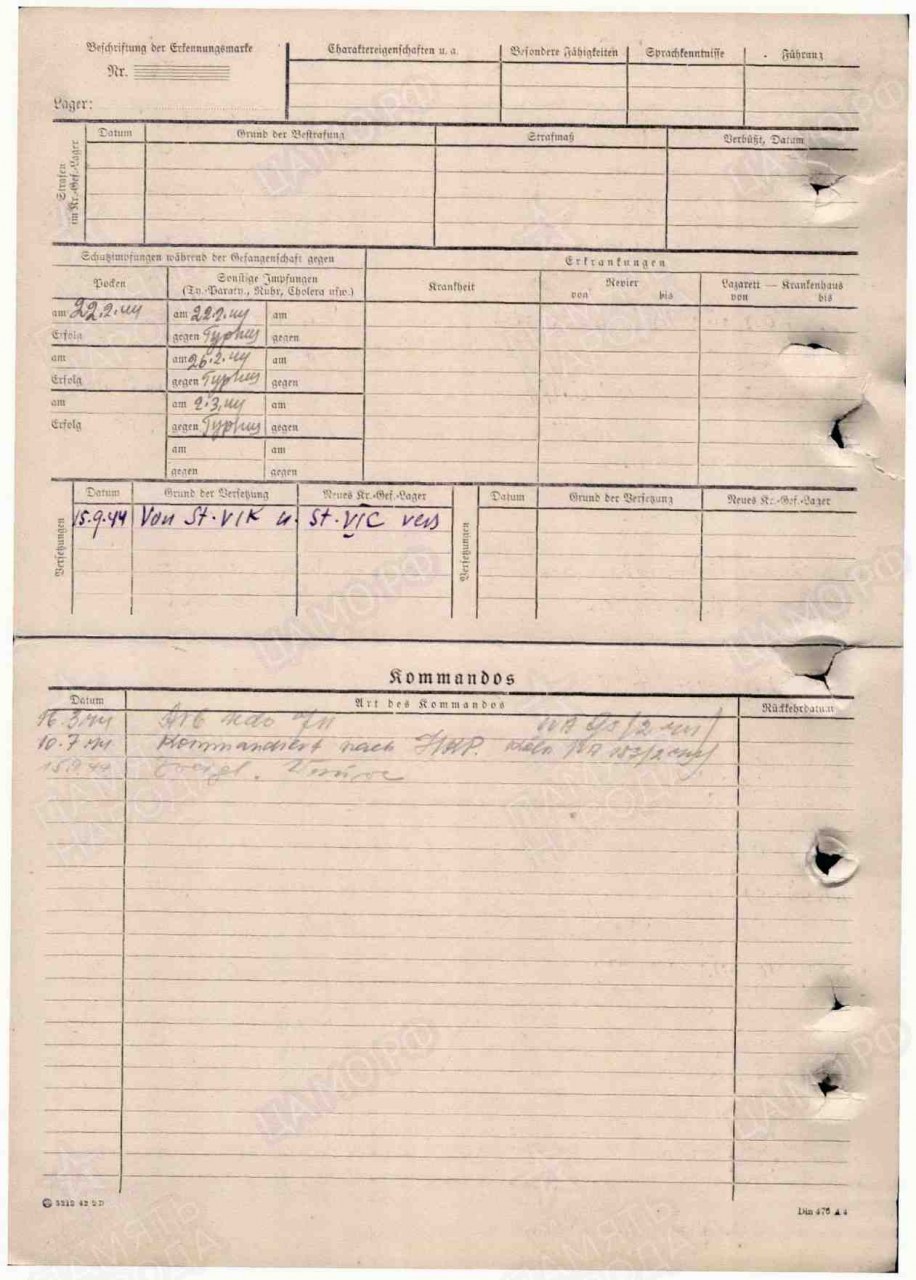 Beschriftung der Erkennungsmarke
Nr.
Lager:
Charaktereigenschaften u. a.
Besondere Fähigkeiten
Sprachkenntnisse
Führung
Strafen im Kr.-Gef.-Lager
Datum
Grund der Bestrafung
Strafmaß
Verbüßt, Datum
Schutzimpfungen während der Gefangenschaft gegen
Erkrankungen
Pocken
Sonstige Impfungen
(Ty.-Paraty., Ruhr, Cholera usw.)
Krankheit
Revier
von bis
Lazarett — Krankenhaus
von bis
am 22.2.44 am 22.2.44 am
Erfolg gegen Typhus gegen
am am 26.2.44 am
Erfolg gegen Typhus gegen
am am 2.3.44 am
Erfolg gegen Typhus gegen
am am
gegen gegen
Versetzungen
Datum Grund der Versetzung Neues Kr.-Gef.-Lager
15.9.44 Von St. VI K n. St. VI C vers
Versetzungen
Datum Grund der Versetzung Neues Kr.-Gef.-Lager
Kommandos
Datum Art des Kommandos Rückkehrdatum
16.3.44 Arb
10.7.44 Kommandiert nach Köln
15.9.44
3312 42 2 D
Din 476 A 4
ЦАМО РФ
ПАМЯТЬ НАРОДА